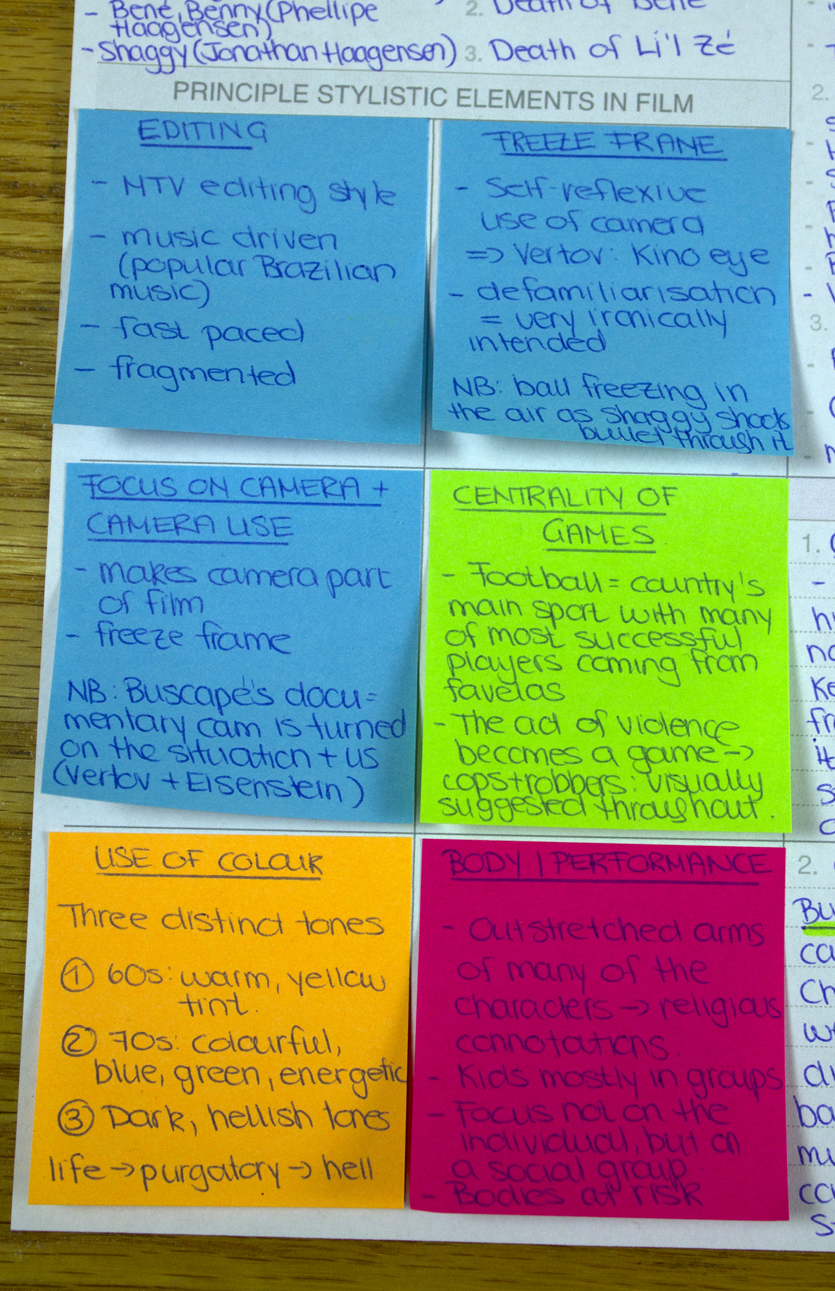 - Bené, Benny (Phellipe
Haagensen)
- Shaggy (Jonathan Haagensen)
2. Death of Bené
3. Death of Li'l Zé
PRINCIPLE STYLISTIC ELEMENTS IN FILM
EDITING
- MTV editing style
- music driven
(popular Brazilian
music)
- fast paced
- fragmented
FREEZE FRAME
- Self-reflexive
use of camera
=> Vertov: Kino eye
- defamiliarisation
= very ironically
intended
NB: ball freezing in
the air as Shaggy shoots
bullet through it
FOCUS ON CAMERA +
CAMERA USE
- makes camera part
of film
- freeze frame
NB: Buscapé's docu=
mentary cam is turned
on the situation + us
(Vertov + Eisenstein)
CENTRALITY OF
GAMES
- Football = country's
main sport with many
of most successful
players coming from
favelas
- The act of violence
becomes a game ->
cops+robbers: visually
suggested throughout.
USE OF COLOUR
Three distinct tones
① 60s: warm, yellow
tint.
② 70s: colourful,
blue, green, energetic
③ Dark, hellish tones
life -> purgatory -> hell
BODY / PERFORMANCE
- Outstretched arms
of many of the
characters -> religious
connotations
- Kids mostly in groups
- Focus not on the
individual, but on
a social group
- Bodies at risk
2.
3.
1.
2.